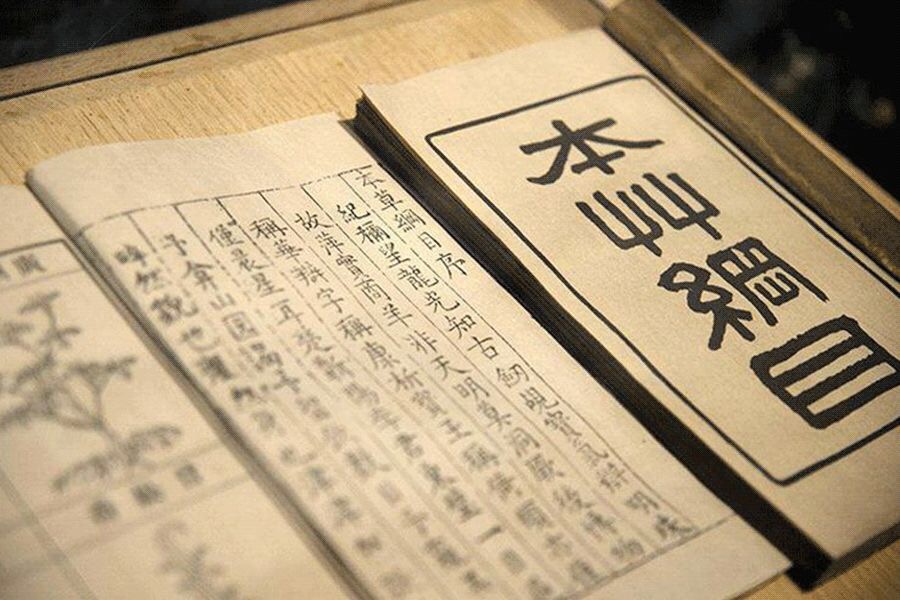 本艸綱目
本草綱目序
紀稱望龍光知古劒覘寶氣辨明珠
故萍實商羊非天明莫洞厥後博物
稱華辯字稱康析寶玉稱倚頓亦
僅晨星耳楚蘄陽李君東璧一日
予弇山園謁予留飲數日予窺其
睟然貌也癯然